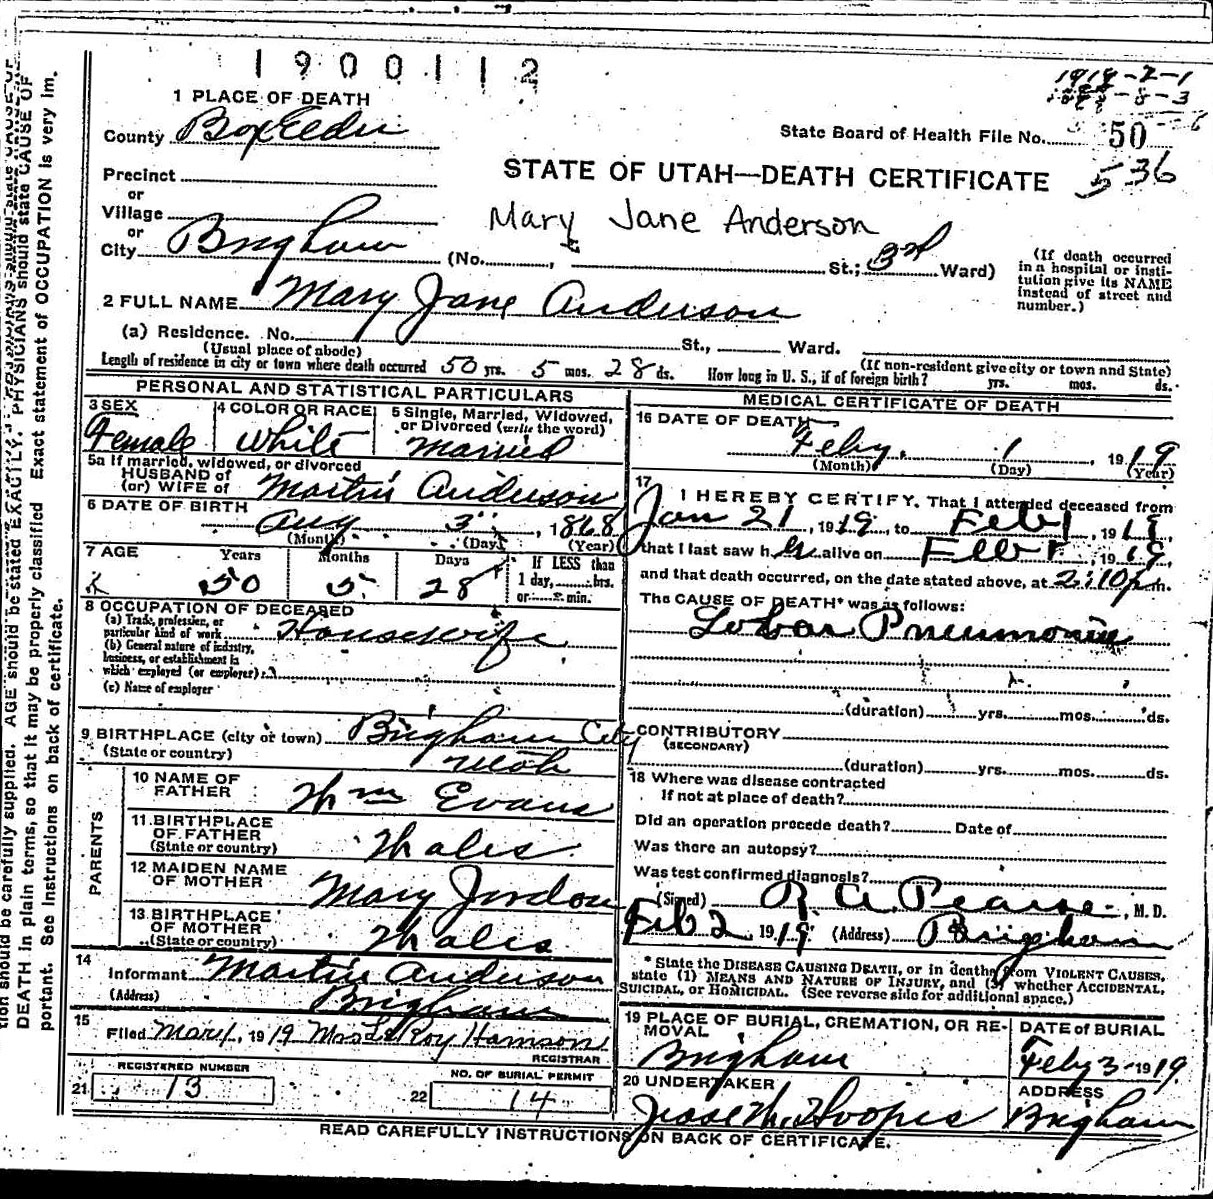 1900112
1919-2-1
1 PLACE OF DEATH
County Box Elder
State Board of Health File No. 50
536
STATE OF UTAH—DEATH CERTIFICATE
Precinct
or
Village
Mary Jane Anderson
or
City Brigham (No. , St.; 3rd Ward)
(If death occurred in a hospital or institution give its NAME instead of street and number.)
2 FULL NAME Mary Jane Anderson
(a) Residence. No. St., Ward.
(Usual place of abode) (If non-resident give city or town and State)
Length of residence in city or town where death occurred 50 yrs. 5 mos. 28 ds. How long in U. S., if of foreign birth? yrs. mos. ds.
PERSONAL AND STATISTICAL PARTICULARS
3 SEX
Female
4 COLOR OR RACE
White
5 Single, Married, Widowed, or Divorced (write the word)
Married
5a If married, widowed, or divorced
HUSBAND of
(or) WIFE of Martin Anderson
6 DATE OF BIRTH
Aug 3", 1868
(Month) (Day) (Year)
7 AGE Years Months Days If LESS than
50 5 28 1 day, hrs.
or min.
8 OCCUPATION OF DECEASED
(a) Trade, profession, or
particular kind of work Housewife
(b) General nature of industry,
business, or establishment in
which employed (or employer)
(c) Name of employer
9 BIRTHPLACE (city or town) Brigham City
(State or country) Utah
PARENTS
10 NAME OF
FATHER Wm Evans
11 BIRTHPLACE
OF FATHER
(State or country) Wales
12 MAIDEN NAME
OF MOTHER Mary Jordon
13 BIRTHPLACE
OF MOTHER
(State or country) Wales
14
Informant Martin Anderson
(Address) Brigham
15
Filed Mar 1, 1919 Mrs LeRoy Hamson
REGISTRAR
REGISTERED NUMBER
21 13
NO. OF BURIAL PERMIT
22 14
MEDICAL CERTIFICATE OF DEATH
16 DATE OF DEATH
Feby. 1, 1919
(Month) (Day) (Year)
17
I HEREBY CERTIFY, That I attended deceased from
Jan 21, 1919, to Feb 1, 1919
that I last saw her alive on Feb 1, 1919
and that death occurred, on the date stated above, at 2:10 p m.
The CAUSE OF DEATH* was as follows:
Lobar Pneumonia
(duration) yrs. mos. ds.
CONTRIBUTORY
(SECONDARY)
(duration) yrs. mos. ds.
18 Where was disease contracted
If not at place of death?
Did an operation precede death? Date of
Was there an autopsy?
Was test confirmed diagnosis?
(Signed) R. A. Pearse, M. D.
Feb 2 1919 (Address) Brigham
* State the DISEASE CAUSING DEATH, or in deaths from VIOLENT CAUSES,
state (1) MEANS AND NATURE OF INJURY, and (2) whether ACCIDENTAL,
SUICIDAL, or HOMICIDAL. (See reverse side for additional space.)
19 PLACE OF BURIAL, CREMATION, OR REMOVAL
Brigham
DATE of BURIAL
Feby 3 1919
20 UNDERTAKER
Jesse W. Hoopes
ADDRESS
Brigham
READ CAREFULLY INSTRUCTIONS ON BACK OF CERTIFICATE.
tion should be carefully supplied. AGE should be stated EXACTLY. PHYSICIANS should state CAUSE OF
DEATH in plain terms, so that it may be properly classified Exact statement of OCCUPATION is very im.
portant. See Instructions on back of certificate.